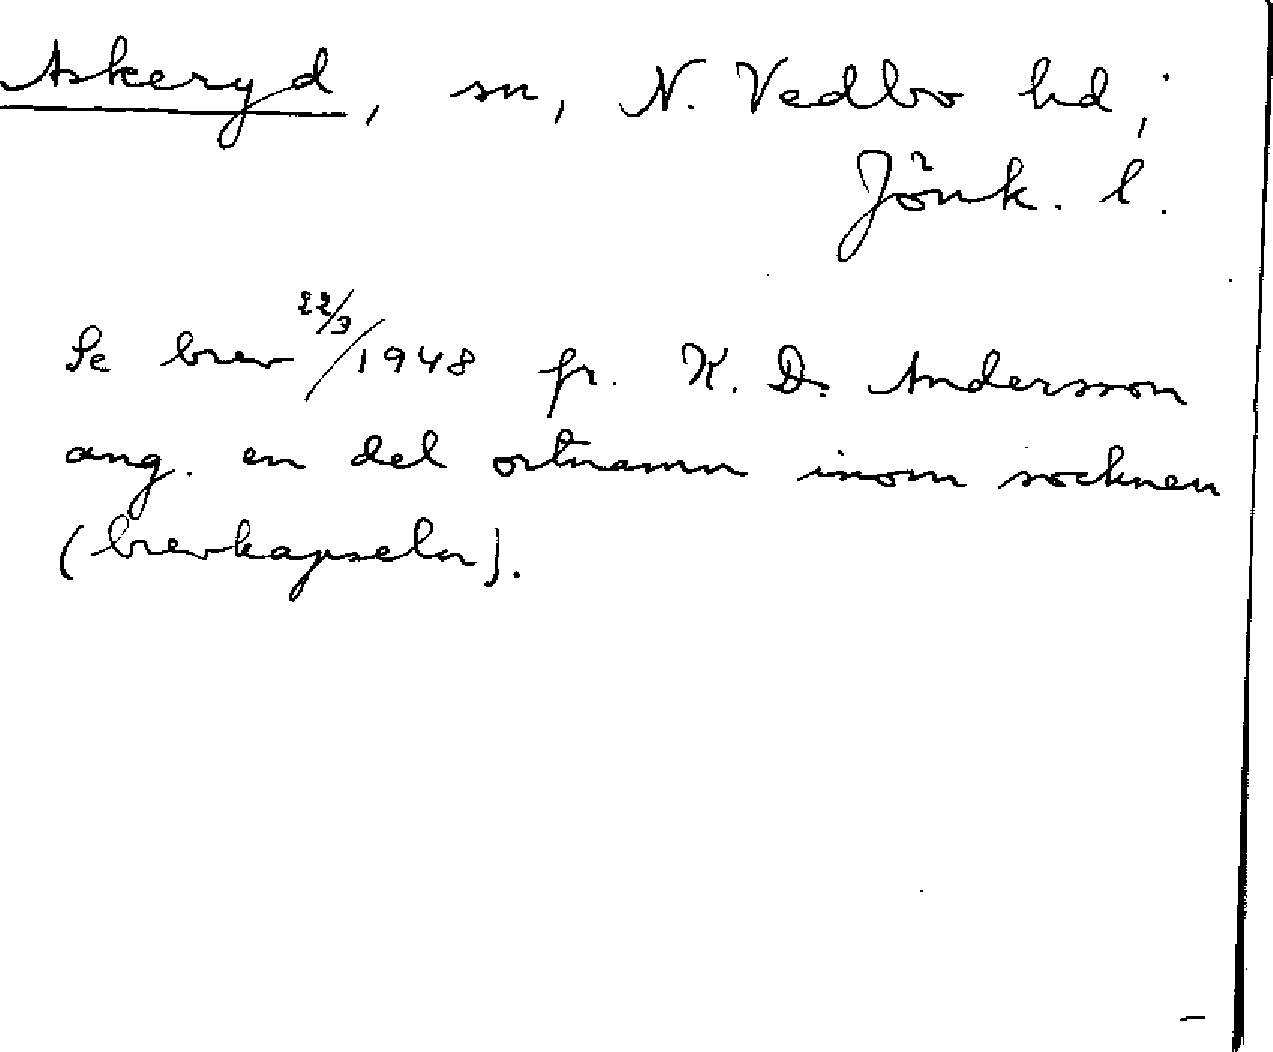 Askeryd, sn, N. Vedbo hd,
Jönk. l.
Se brev 22/3/1948 fr. K. D. Andersson
ang. en del ortnamn inom socknen
(brevkapseln).